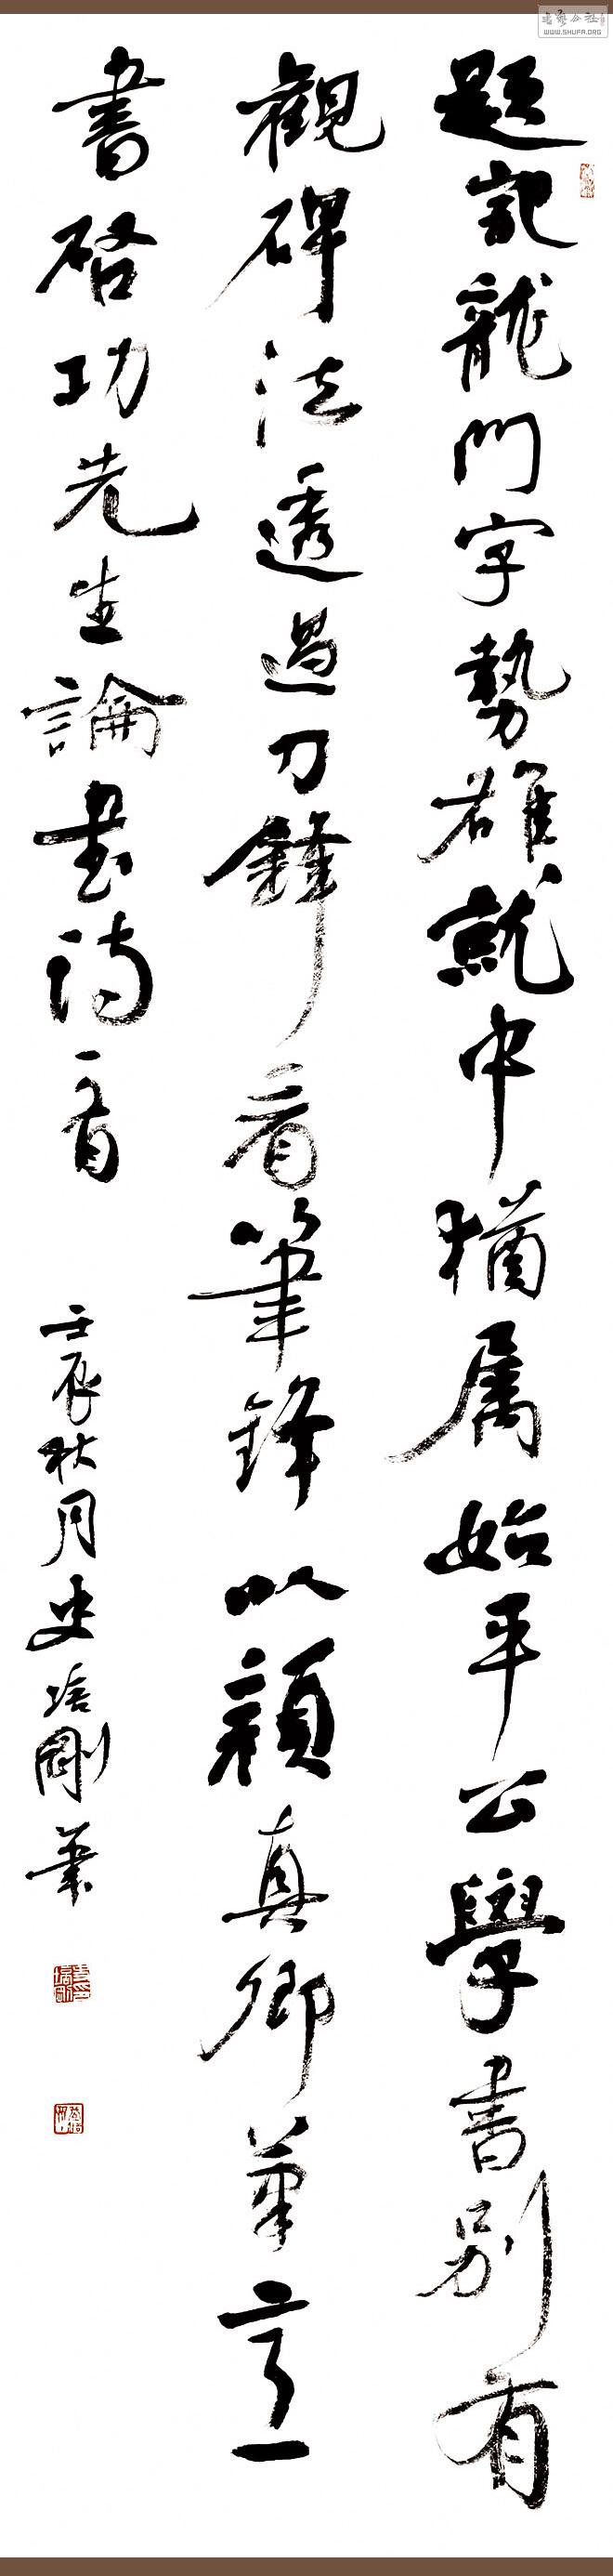 題記龍門字勢雄就中猶属始平公學書別有
觀碑法透過刀鋒看筆鋒以顔真卿筆意
書啓功先生論書詩一首
壬辰秋月史培剛筆
書藝公社
WWW.SHUFA.ORG